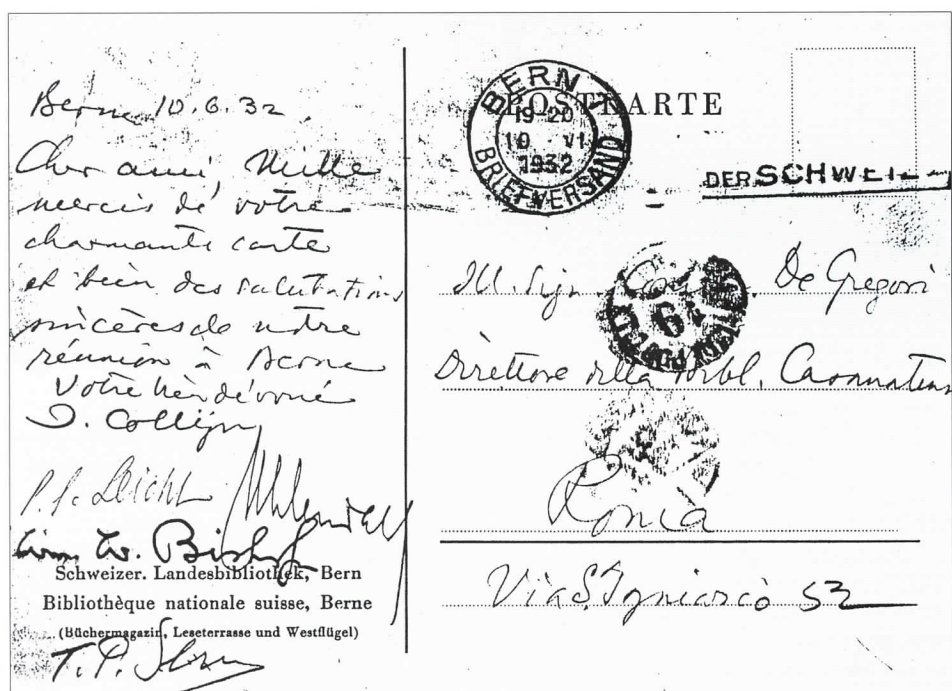 Berne 10.6.32
Cher ami, Mille
mercis de votre
charmante carte
et bien des salutations
sincères de notre
réunion à Berne
Votre très dévoué
I. Collijn
P. S. Leicht
Wm. W. Bishop
Schweizer. Landesbibliothek, Bern
Bibliothèque nationale suisse, Berne
(Büchermagazin, Leseterrasse und Westflügel)
T. P.
POSTKARTE
BERN 1
19-20
10 VI
1932
BRIEFVERSAND
DER SCHWEI
Ill. Sign. De Gregori
Direttore della Bibl. Casanatense
Roma
Via S. Igniazio 52